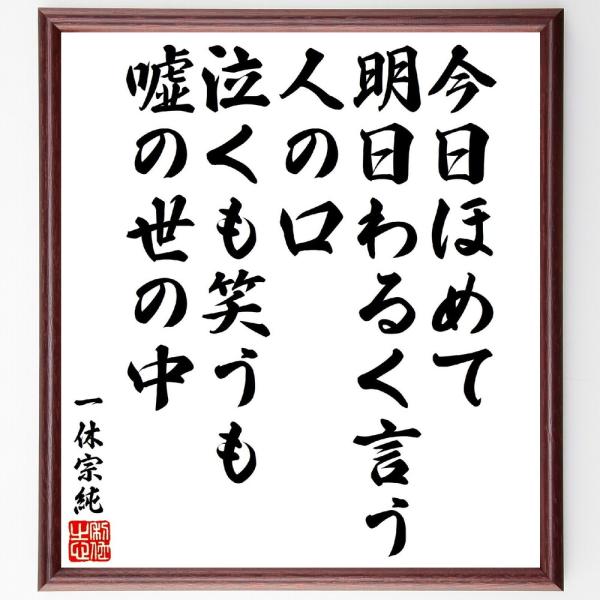 今日ほめて
明日わるく言う
人の口
泣くも笑うも
嘘の世の中
一休宗純